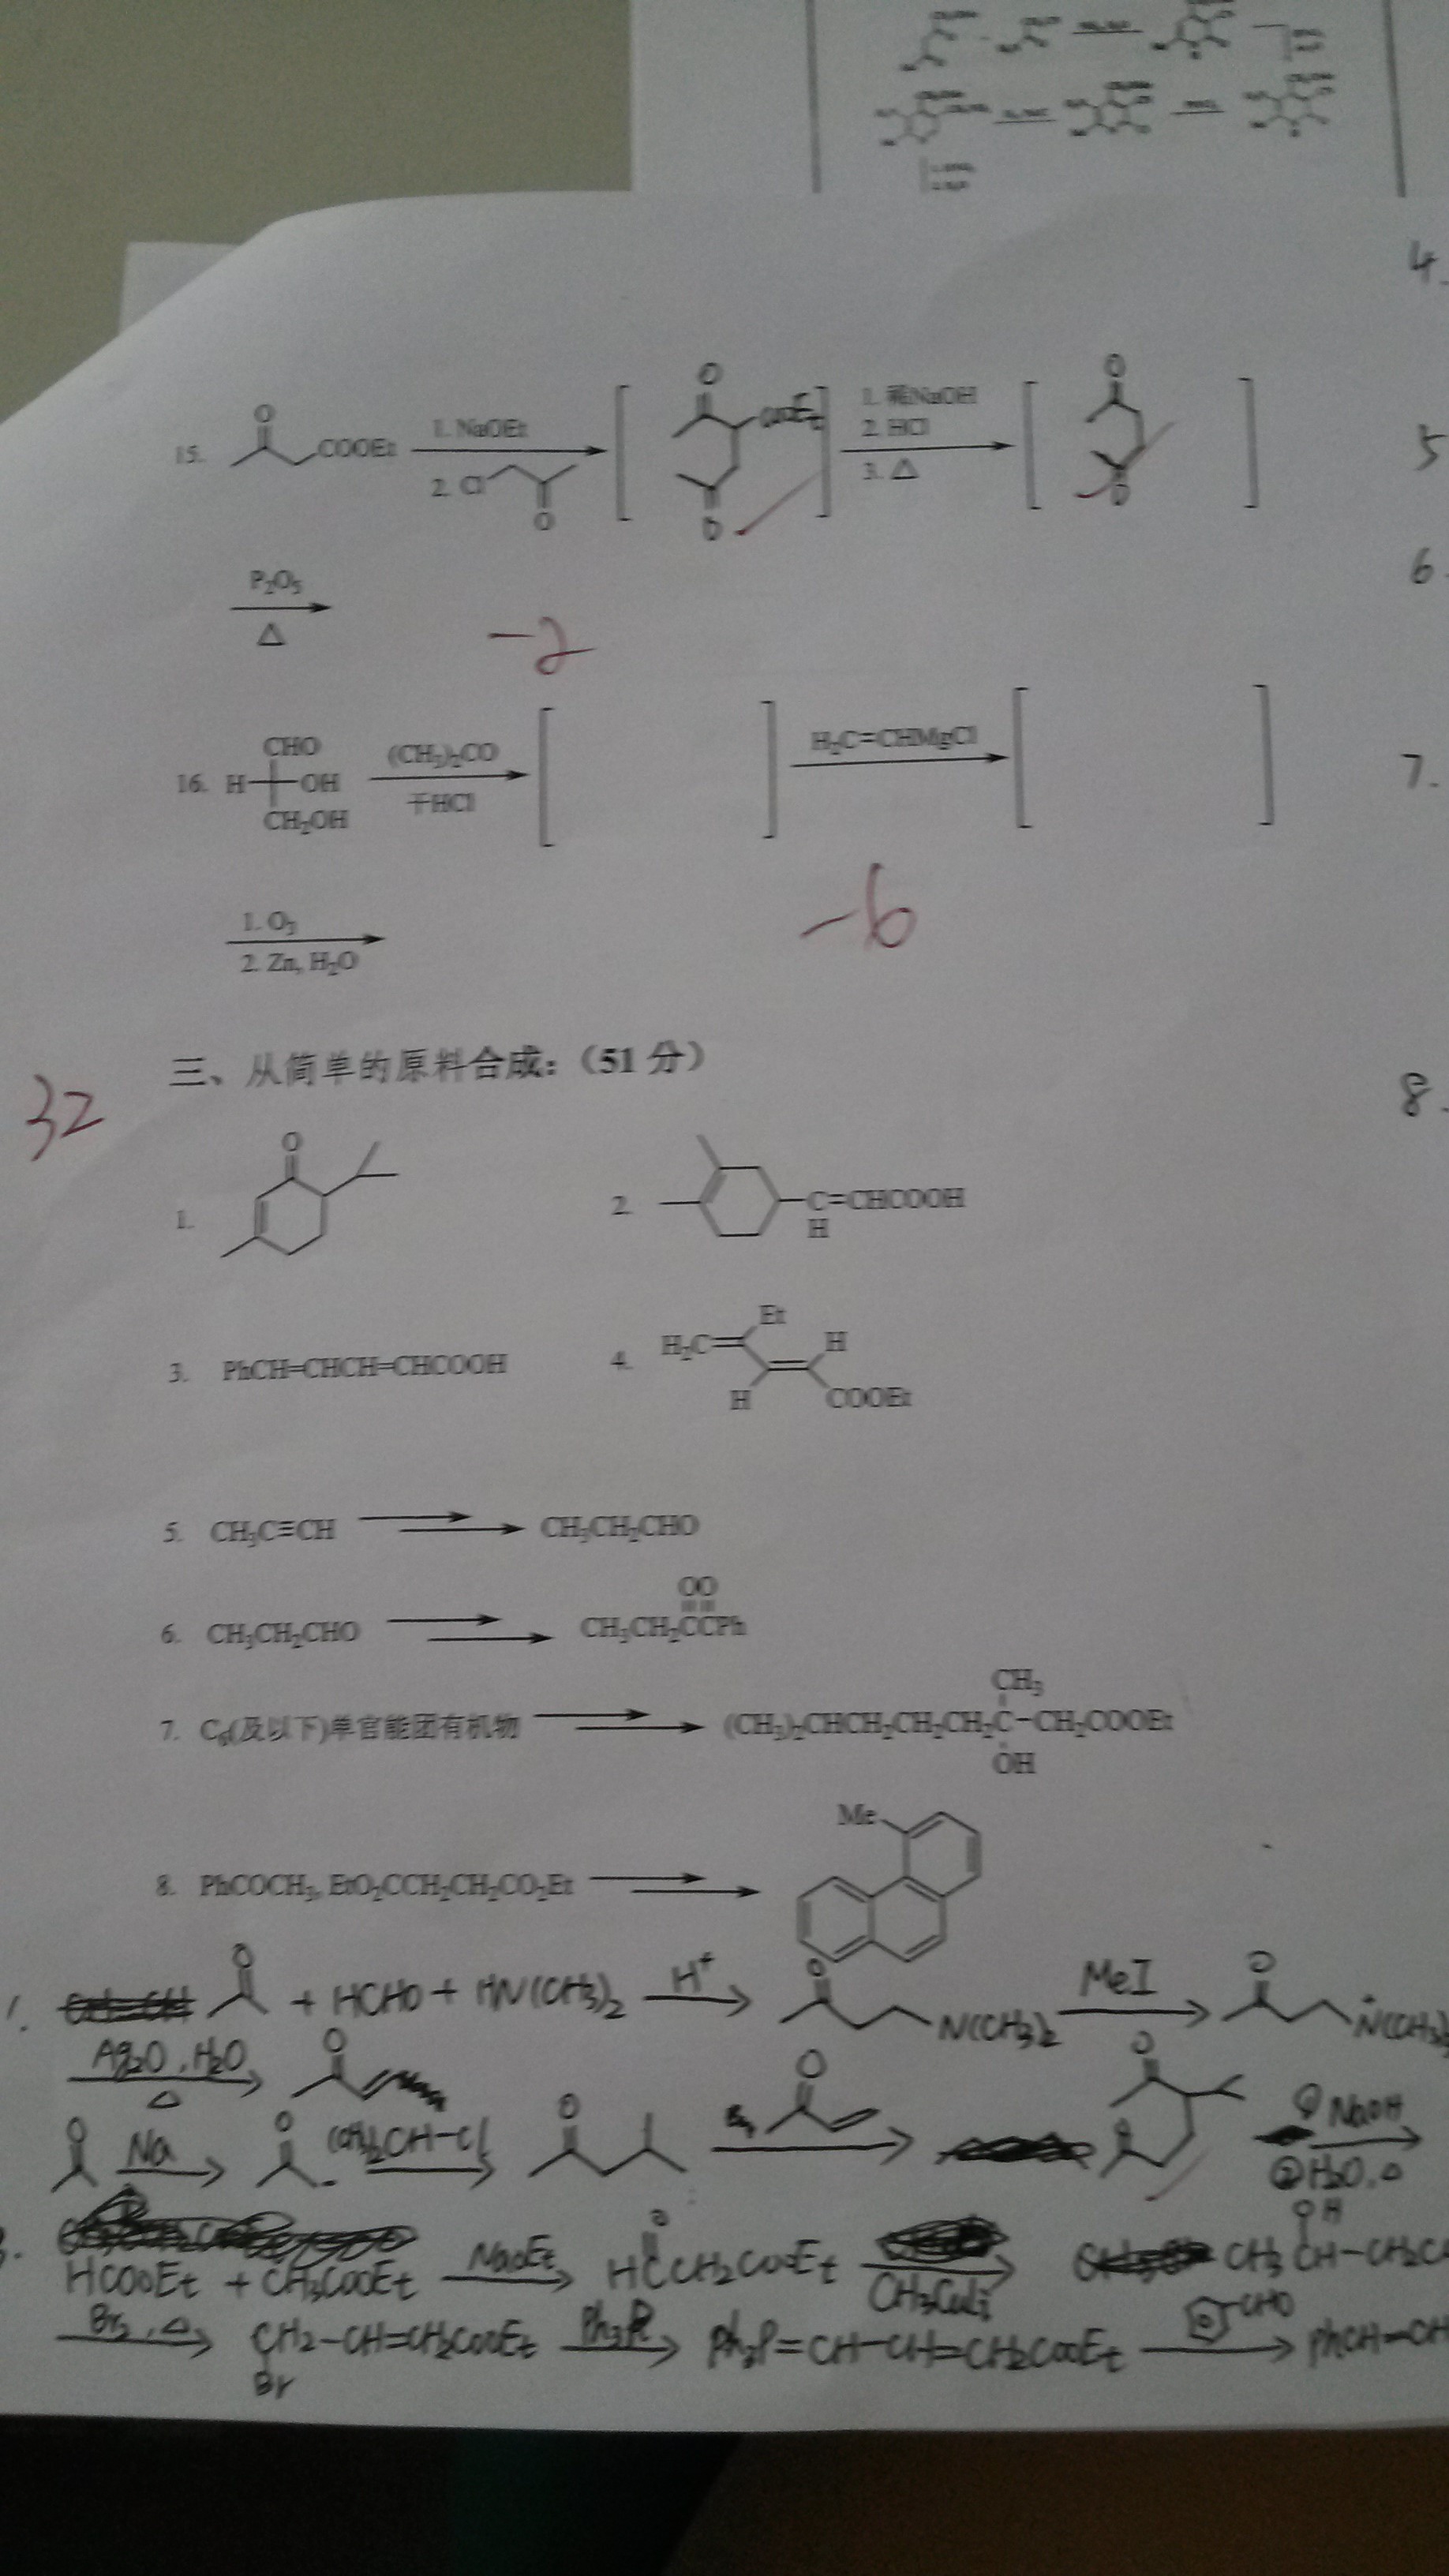 4.
O O
15. COOEt 1. NaOEt 2. Cl O [ O COOEt O ] 1. 稀NaOH 2. HCl 3. △ [ O O ]
5
P₂O₅
△
6.
-2
16. CHO H OH CH₂OH (CH₃)₂CO 干HCl [ ] H₂C=CHMgCl [ ]
7.
-6
1. O₃
2. Zn, H₂O
三、从简单的原料合成:(51 分)
32
8.
1. O
2. C=CHCOOH
H
3. PhCH=CHCH=CHCOOH
4. H₂C Et H H COOEt
5. CH₃C≡CH CH₃CH₂CHO
6. CH₃CH₂CHO OO CH₃CH₂CCPh
7. C₆(及以下)单官能团有机物 (CH₃)₂CHCH₂CH₂CH₂C-CH₂COOEt
CH₃
OH
8. PhCOCH₃, EtO₂CCH₂CH₂CO₂Et Me
1. O + HCHO + HN(CH₃)₂ H⁺ O N(CH₃)₂ MeI O
Ag₂O, H₂O △ O
O Na O (CH₃)₂CH-Cl O O O O ① NaOH ② H₂O, △
HCOOEt + CH₃COOEt NaOEt O HCCH₂COOEt CH₃CuLi OH CH₃CH-CH₂C
Br₂, △ CH₂-CH=CH₂COOEt Br Ph₃P Ph₃P=CH-CH=CH₂COOEt CHO PhCH=CH